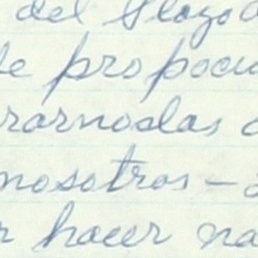 del plazo
propocu
rarnoslas
nosotros -
hacer na